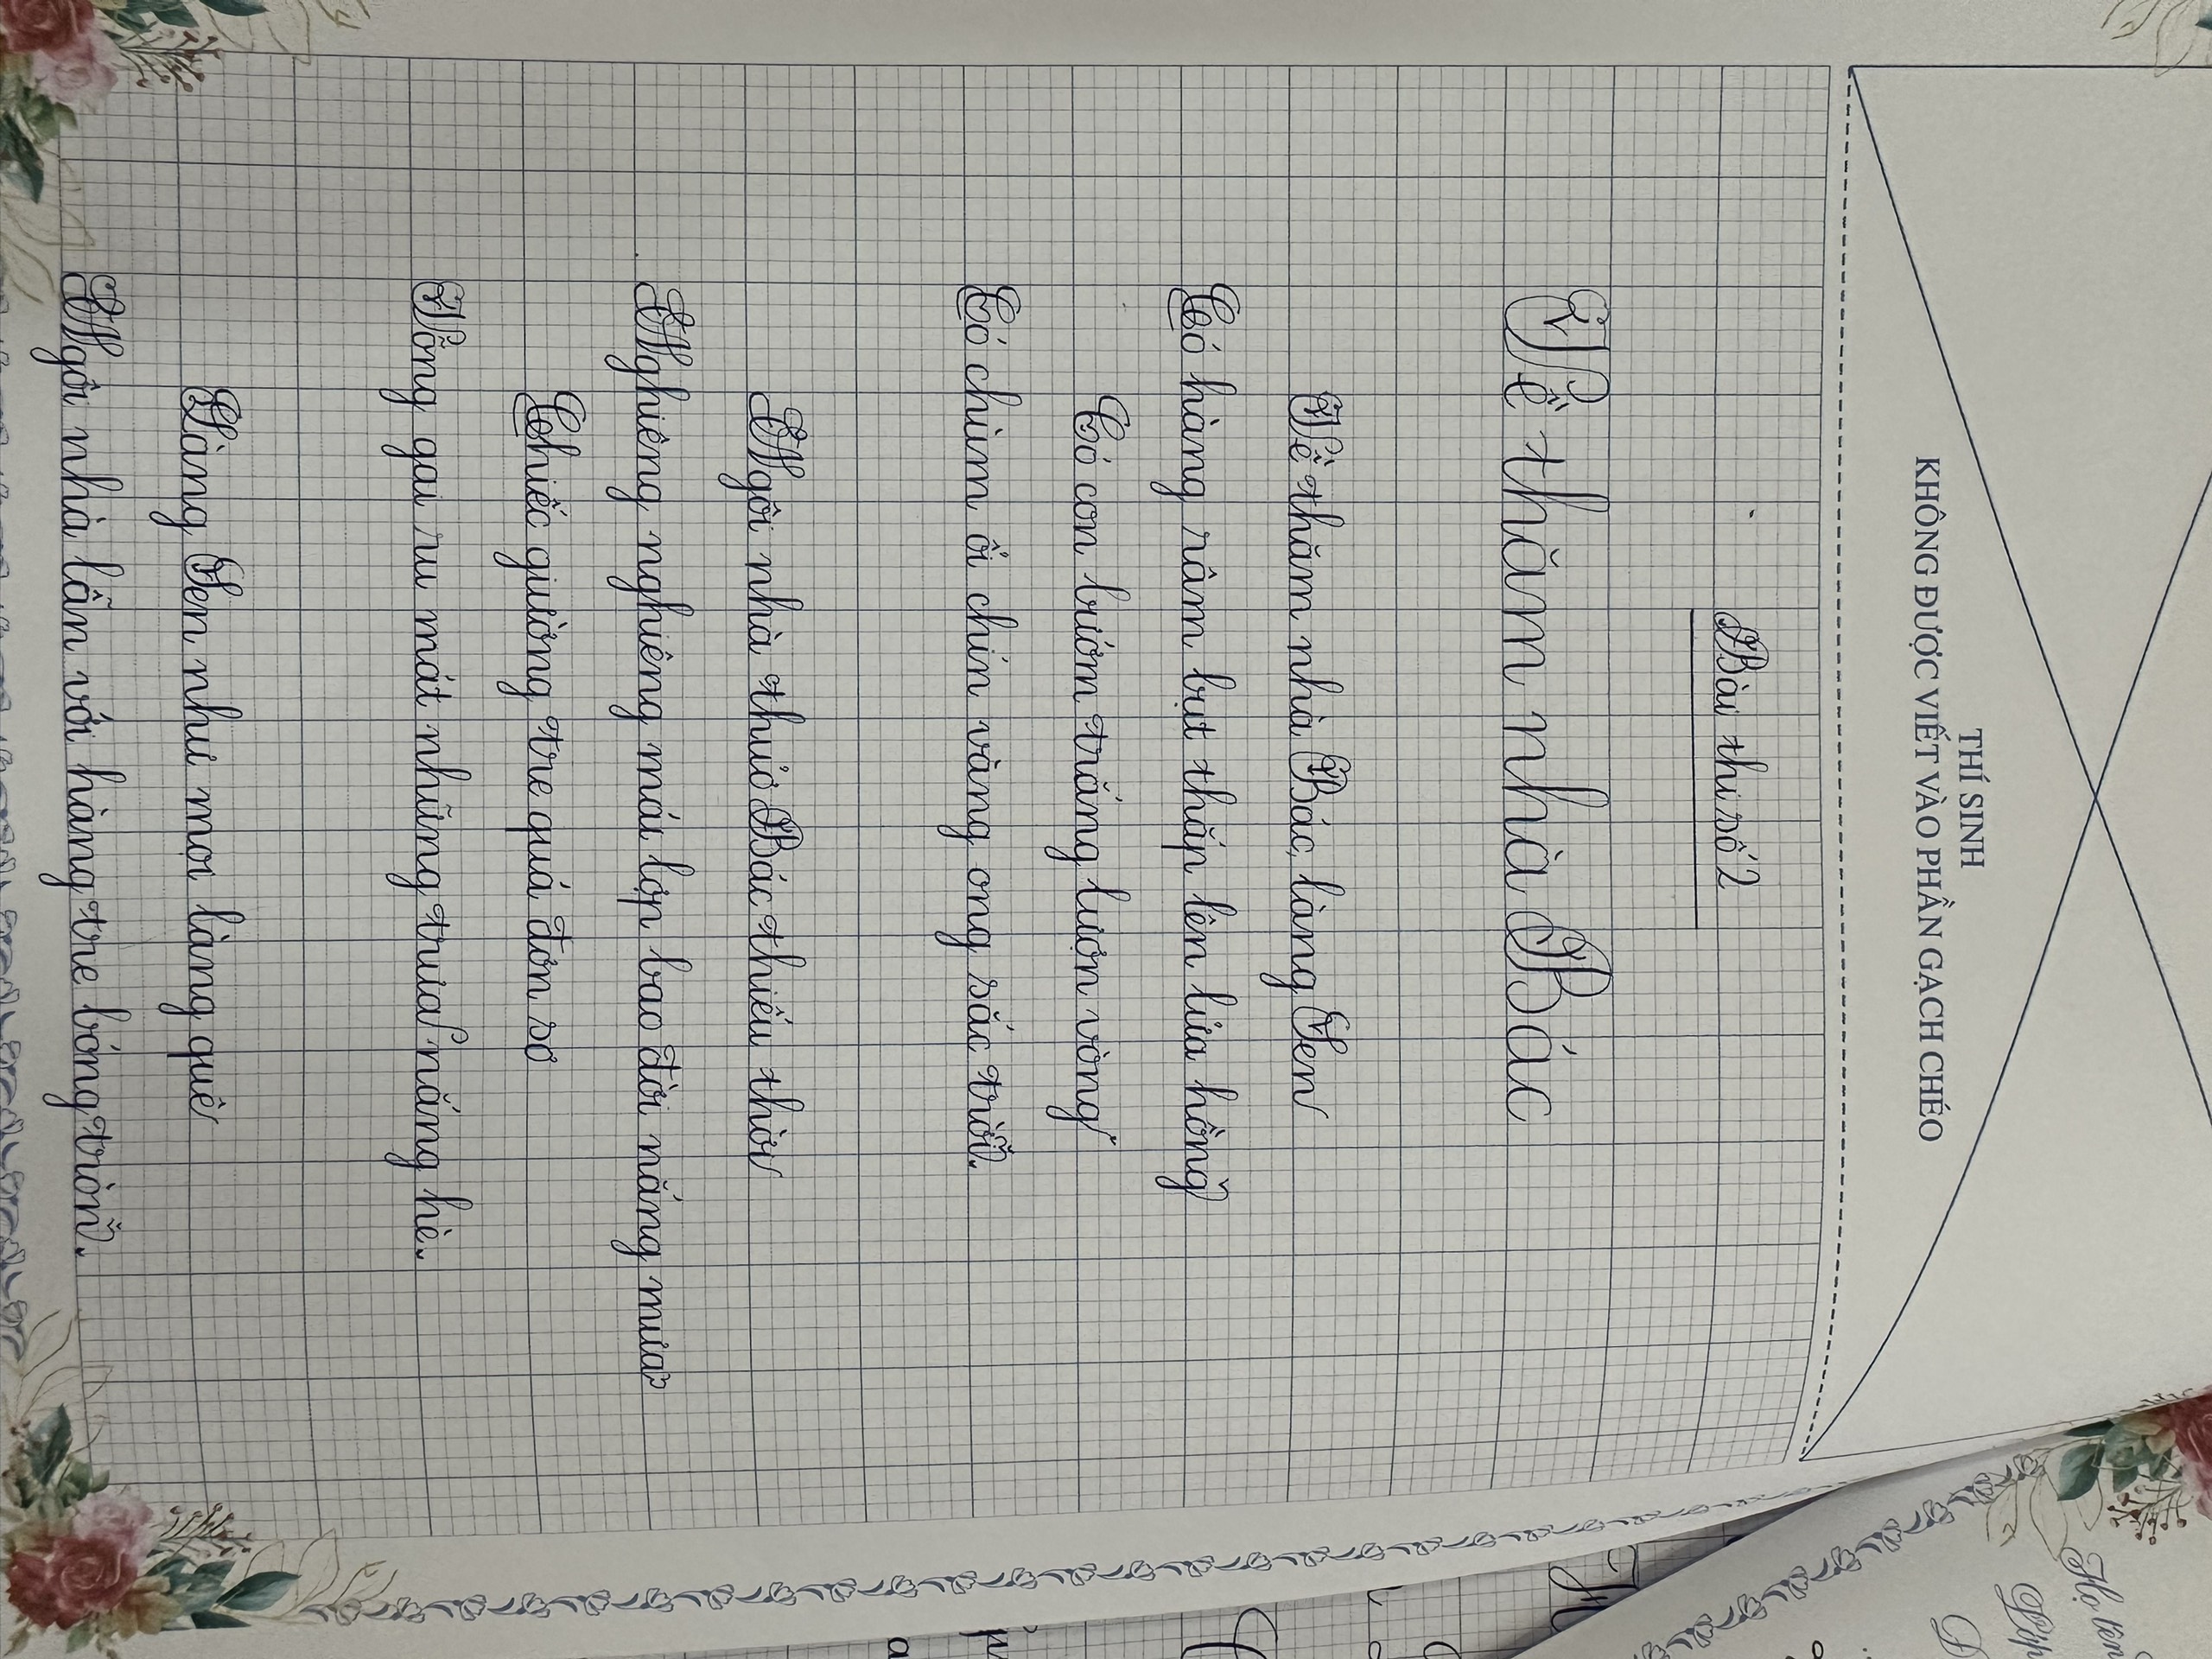 THÍ SINH
KHÔNG ĐƯỢC VIẾT VÀO PHẦN GẠCH CHÉO
Bài thi số 2
Về thăm nhà Bác
Về thăm nhà Bác, làng Sen
Có hàng râm bụt thắp lên lửa hồng
Có con bướm trắng lượn vòng
Có chùm ổi chín vàng ong sắc trời.
Ngôi nhà thuở Bác thiếu thời
Nghiêng nghiêng mái lợp bao đời nắng mưa
Chiếc giường tre quá đơn sơ
Võng gai ru mát những trưa nắng hè.
Làng Sen như mọi làng quê
Ngôi nhà lẫn với hàng tre bóng tròn.
Họ tên
Lớp